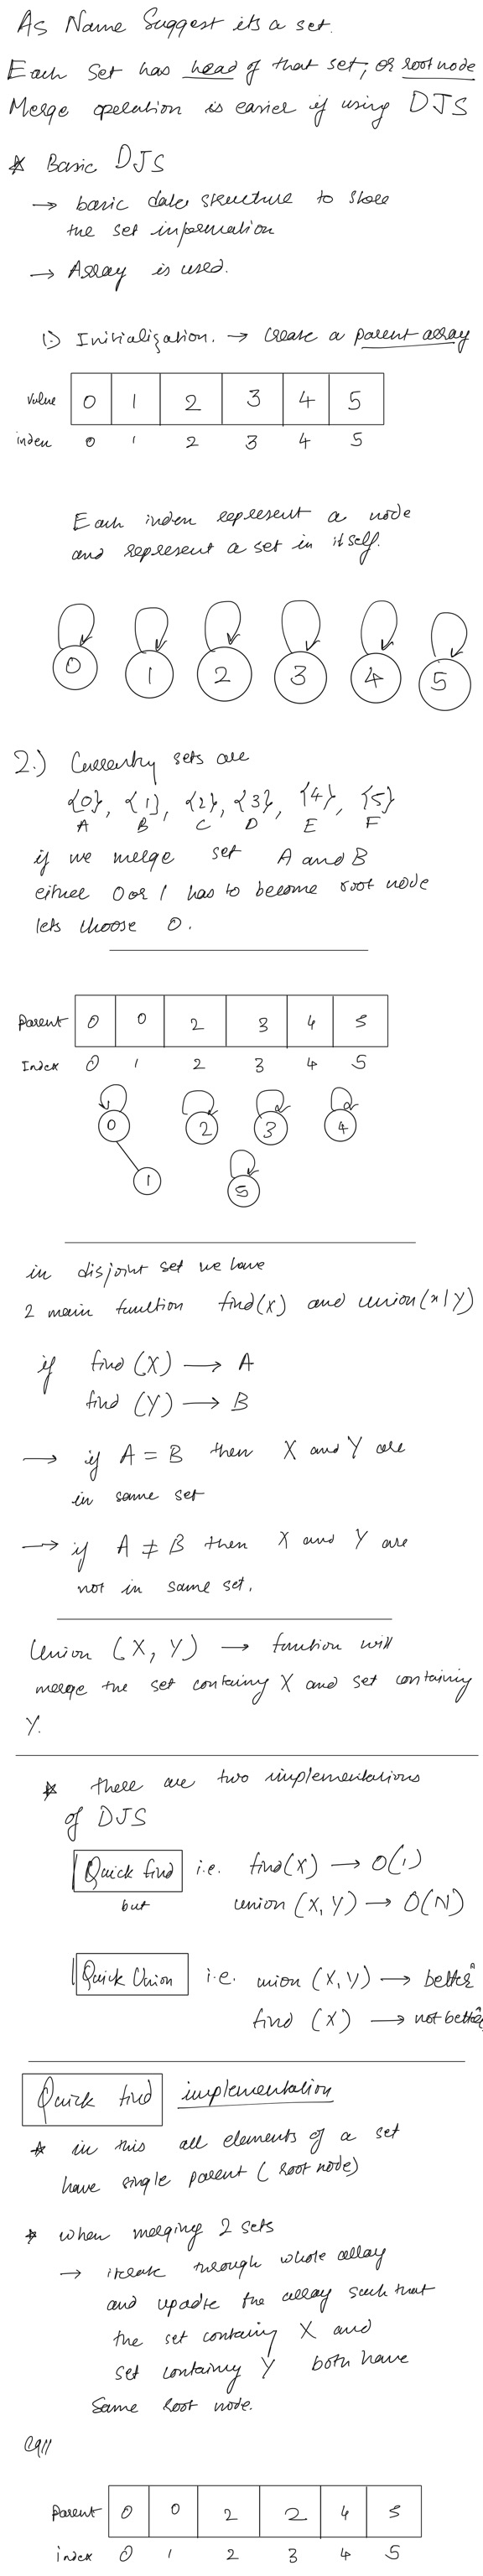 As Name Suggest its a set.
Each Set has head of that set, or root node
Merge operation is easier if using DJS
* Basic DJS
→ basic data structure to store
the set information
→ Array is used.
1.) Initialization. → Create a parent array
value 0 1 2 3 4 5
index 0 1 2 3 4 5
Each index represent a node
and represent a set in itself.
0 1 2 3 4 5
2.) Currently sets are
{0}, {1}, {2}, {3}, {4}, {5}
A B C D E F
if we merge set A and B
either 0 or 1 has to become root node
lets choose 0.
Parent 0 0 2 3 4 5
Index 0 1 2 3 4 5
0 2 3 4
1 5
in disjoint set we have
2 main function find(x) and union(x,y)
if find (X) → A
find (Y) → B
→ if A = B then X and Y are
in same set
→ if A ≠ B then X and Y are
not in same set.
Union (X, Y) → function will
merge the set containg X and set containing
Y.
* there are two implementations
of DJS
Quick find i.e. find(X) → O(1)
but union (X, Y) → O(N)
Quick Union i.e. union (X,Y) → better
find (X) → not better
Quick find implementation
* in this all elements of a set
have single parent (root node)
* when merging 2 sets
→ iterate through whole array
and update the array such that
the set containg X and
set containg Y both have
Same root node.
parent 0 0 2 2 4 5
index 0 1 2 3 4 5